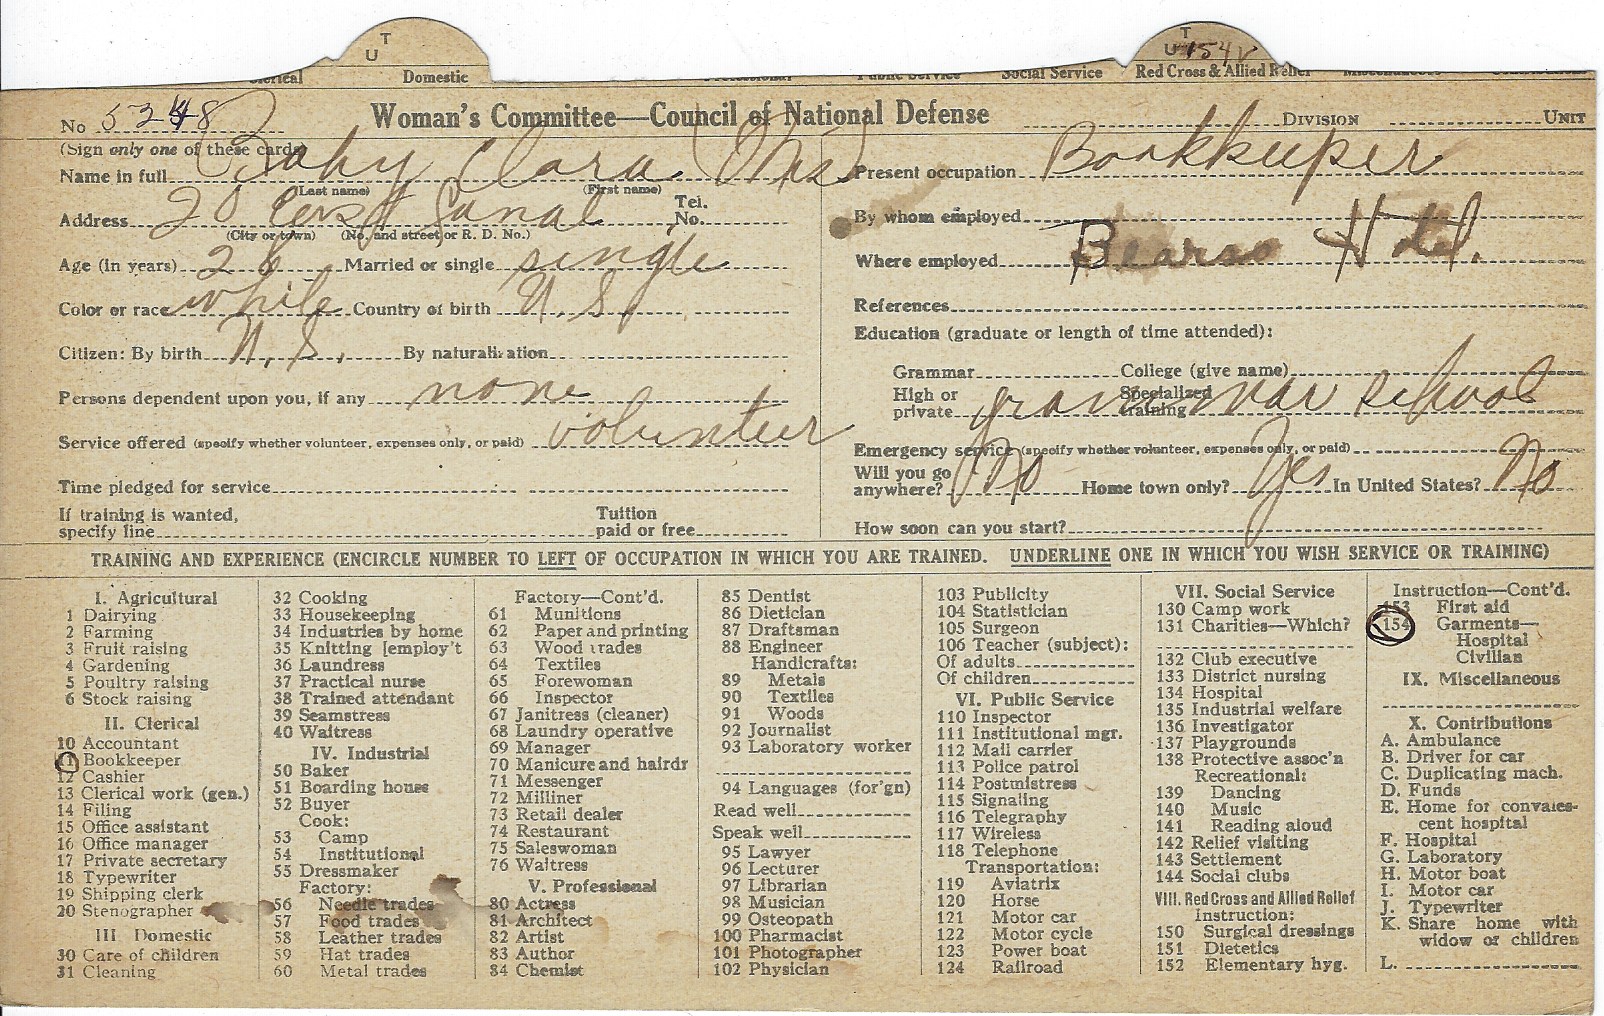 T
U
T
U 154 V
Clerical Domestic Professional Public Service Social Service Red Cross & Allied Relief Miscellaneous
No 5348 Woman's Committee—Council of National Defense DIVISION UNIT
(Sign only one of these cards)
Name in full Clara
(Last name) (First name)
Address 20 Canal Tel. No.
(City or town) (No. and street or R. D. No.)
Age (in years) 26 Married or single single
Color or race white Country of birth U. S.
Citizen: By birth U. S. By naturalization
Persons dependent upon you, if any none
Service offered (specify whether volunteer, expenses only, or paid) volunteer
Time pledged for service
If training is wanted, specify line Tuition paid or free
Present occupation Bookkeeper
By whom employed
Where employed Hotel.
References
Education (graduate or length of time attended):
Grammar College (give name)
High or private grammar school Specialized training
Emergency service (specify whether volunteer, expenses only, or paid)
Will you go anywhere? No Home town only? Yes In United States? No
How soon can you start?
TRAINING AND EXPERIENCE (ENCIRCLE NUMBER TO LEFT OF OCCUPATION IN WHICH YOU ARE TRAINED. UNDERLINE ONE IN WHICH YOU WISH SERVICE OR TRAINING)
I. Agricultural
1 Dairying
2 Farming
3 Fruit raising
4 Gardening
5 Poultry raising
6 Stock raising
II. Clerical
10 Accountant
11 Bookkeeper
12 Cashier
13 Clerical work (gen.)
14 Filing
15 Office assistant
16 Office manager
17 Private secretary
18 Typewriter
19 Shipping clerk
20 Stenographer
III Domestic
30 Care of children
31 Cleaning
32 Cooking
33 Housekeeping
34 Industries by home
35 Knitting [employ't
36 Laundress
37 Practical nurse
38 Trained attendant
39 Seamstress
40 Waitress
IV. Industrial
50 Baker
51 Boarding house
52 Buyer
Cook:
53 Camp
54 Institutional
55 Dressmaker
Factory:
56 Needle trades
57 Food trades
58 Leather trades
59 Hat trades
60 Metal trades
Factory—Cont'd.
61 Munitions
62 Paper and printing
63 Wood trades
64 Textiles
65 Forewoman
66 Inspector
67 Janitress (cleaner)
68 Laundry operative
69 Manager
70 Manicure and hairdr
71 Messenger
72 Milliner
73 Retail dealer
74 Restaurant
75 Saleswoman
76 Waitress
V. Professional
80 Actress
81 Architect
82 Artist
83 Author
84 Chemist
85 Dentist
86 Dietician
87 Draftsman
88 Engineer
Handicrafts:
89 Metals
90 Textiles
91 Woods
92 Journalist
93 Laboratory worker
94 Languages (for'gn)
Read well
Speak well
95 Lawyer
96 Lecturer
97 Librarian
98 Musician
99 Osteopath
100 Pharmacist
101 Photographer
102 Physician
103 Publicity
104 Statistician
105 Surgeon
106 Teacher (subject):
Of adults
Of children
VI. Public Service
110 Inspector
111 Institutional mgr.
112 Mail carrier
113 Police patrol
114 Postmistress
115 Signaling
116 Telegraphy
117 Wireless
118 Telephone
Transportation:
119 Aviatrix
120 Horse
121 Motor car
122 Motor cycle
123 Power boat
124 Railroad
VII. Social Service
130 Camp work
131 Charities—Which?
132 Club executive
133 District nursing
134 Hospital
135 Industrial welfare
136 Investigator
137 Playgrounds
138 Protective assoc'n
Recreational:
139 Dancing
140 Music
141 Reading aloud
142 Relief visiting
143 Settlement
144 Social clubs
VIII. Red Cross and Allied Relief
Instruction:
150 Surgical dressings
151 Dietetics
152 Elementary hyg.
Instruction—Cont'd.
153 First aid
154 Garments—
Hospital
Civilian
IX. Miscellaneous
X. Contributions
A. Ambulance
B. Driver for car
C. Duplicating mach.
D. Funds
E. Home for convales-
cent hospital
F. Hospital
G. Laboratory
H. Motor boat
I. Motor car
J. Typewriter
K. Share home with
widow or children
L.